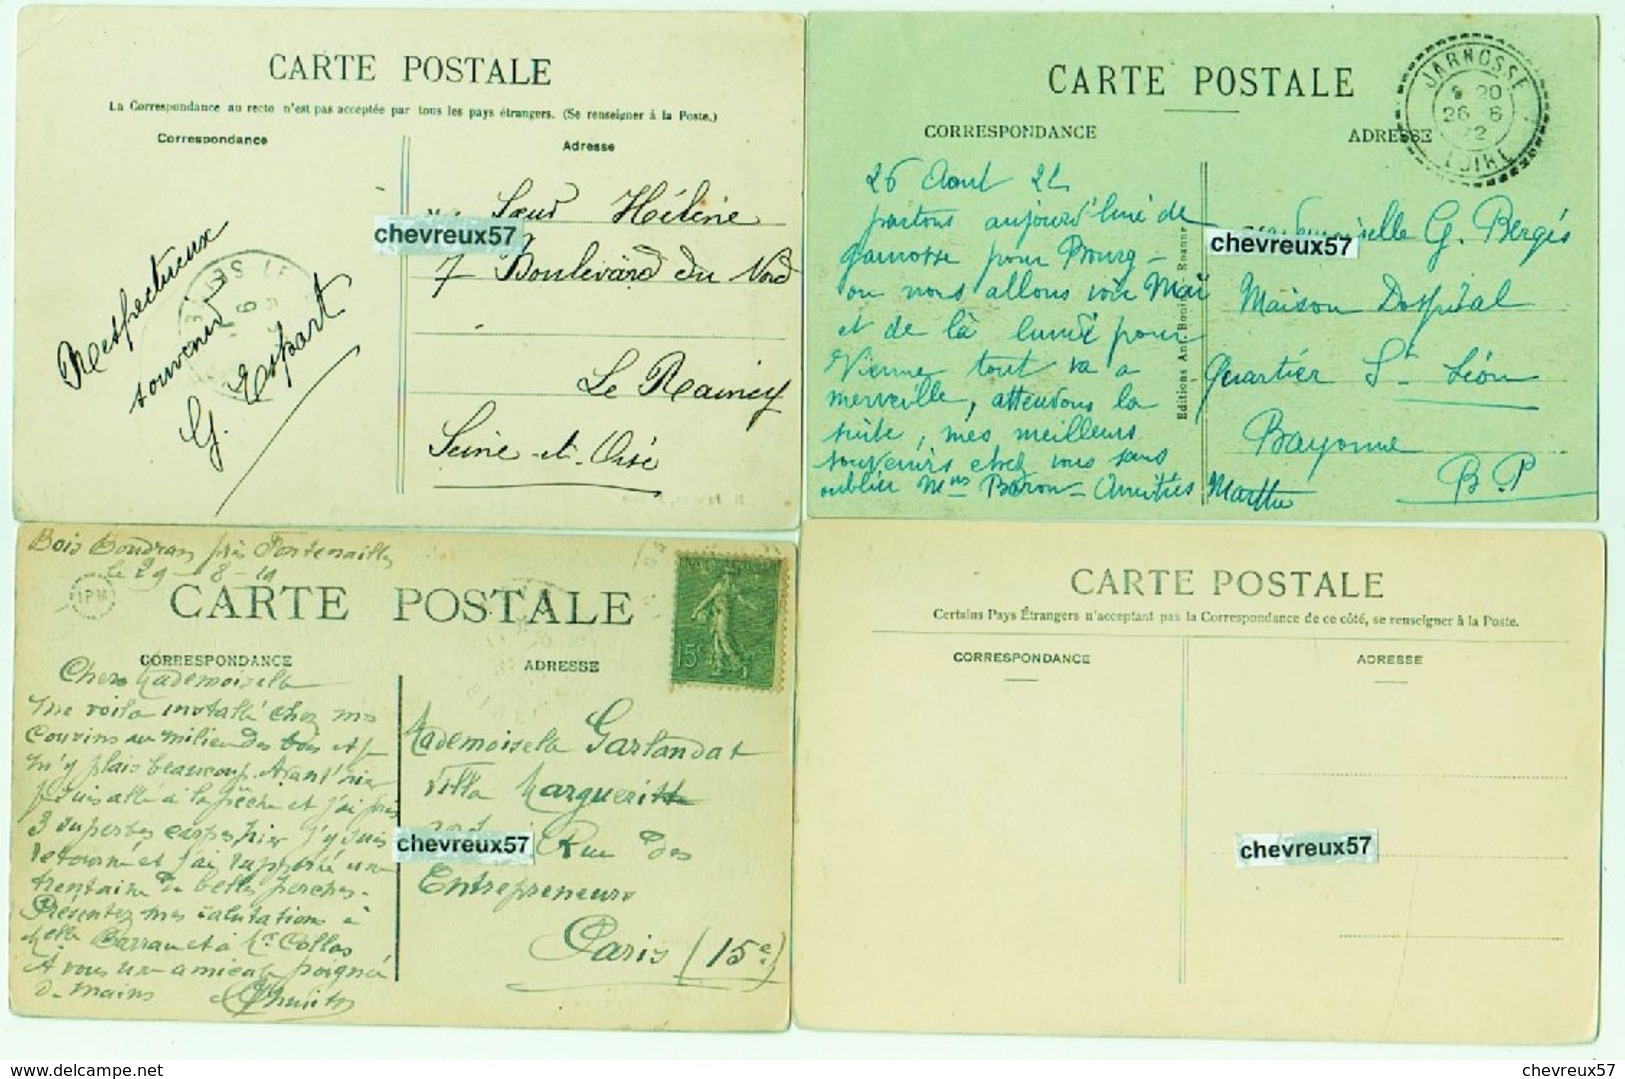 CARTE POSTALE
La Correspondance au recto n'est pas acceptée par tous les pays étrangers. (Se renseigner à la Poste.)
Correspondance
Adresse
Respectueux
souvenir
G. Espart
Sœur Hélène
7 Boulevard du Nord
Le Raincy
Seine-et-Oise
chevreux57
CARTE POSTALE
CORRESPONDANCE
ADRESSE
JARNOSSE
20
26 8
22
LOIRE
26 Aout 22
partons aujourd'hui de
Jarnosse pour Bourg -
ou nous allons voir Mai
et de là lundi pour
Vienne tout va a
merveille, attendons la
suite, mes meilleurs
souvenirs chez vous sans
oublier Mme Baron - Amitiés Marthe
Editions Ant. Roanne
Mademoiselle G. Bergès
Maison Dospital
Quartier St Léon
Bayonne
B.P
chevreux57
Bois Boudran près Fontenailles
le 29-8-19
CARTE POSTALE
CORRESPONDANCE
ADRESSE
15c
Chere Mademoiselle
Me voila installé chez mes
cousins au milieu des bois et je
m'y plais beaucoup. Avant'hier
je suis allé à la pêche et j'ai pris
3 superbes carpes, hier j'y suis
retourné et j'ai rapporté une
trentaine de belles perches.
Présentez mes salutations à
Melle Barrau et à Mr Collas
A vous une amicale poignée
de mains
Mademoiselle Garlandat
Villa Marguerite
Rue des
Entrepreneurs
Paris (15e)
chevreux57
CARTE POSTALE
Certains Pays Étrangers n'acceptant pas la Correspondance de ce côté, se renseigner à la Poste.
CORRESPONDANCE
ADRESSE
chevreux57
delcampe.net
chevreux57